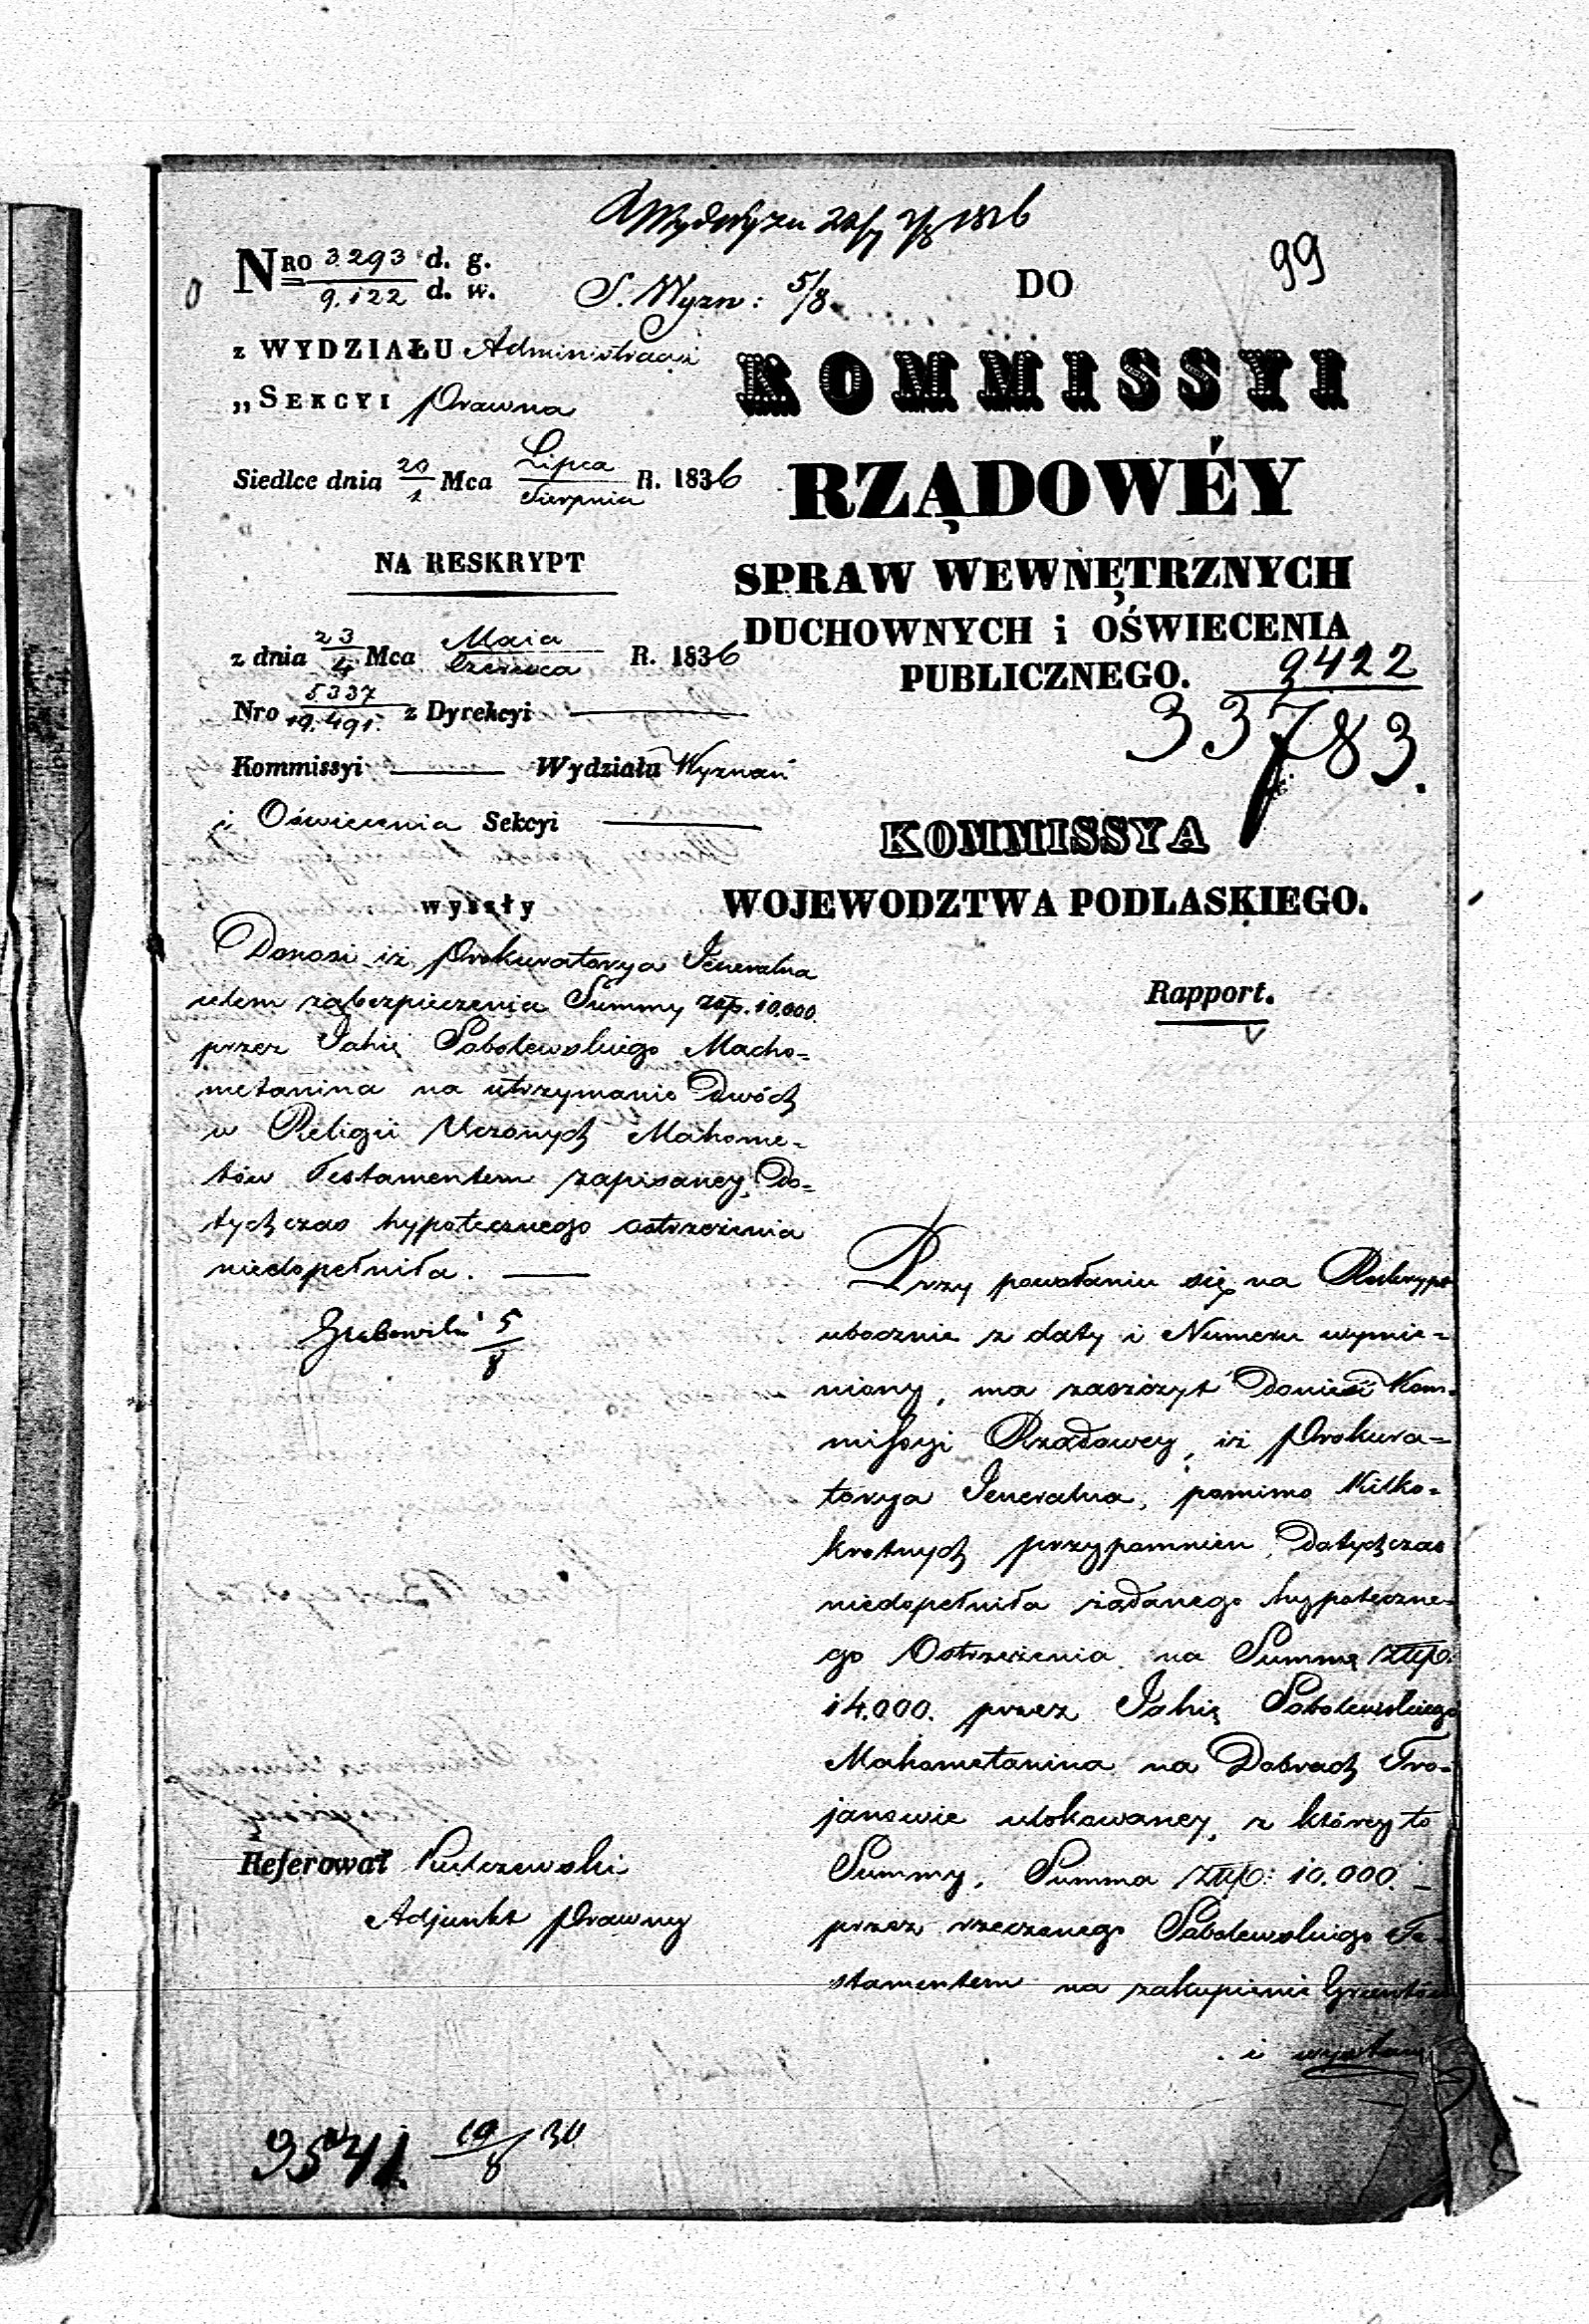 20/7 1/8 1836
99
NRO 3293 d. g.
9.122 d. w.
S. Wyzn: 5/8.
z WYDZIAŁU Administracyi
„SEKCYI Prawna
Siedlce dnia 20/1 Mca Lipca/Sierpnia R. 1836
NA RESKRYPT
z dnia 23/4 Mca Maia/Czerwca R. 1836
Nro 5337/19.491. z Dyrekcyi
Kommissyi Wydziału Wyznań
i Oświecenia Sekcyi
wyszły
Donosi iż Prokuratorya Jeneralna
celem zabezpieczenia Summy złp. 10.000.
przez Jahię Sobolewskiego Macho-
metanina na utrzymanie Dwóch
w Religii Uczonych Mahome-
tów Testamentem zapisaney, Do-
tychczas hypotecznego ostrzeżenia
niedopełniła.
Grabowski 5/8
Referował
Adjunkt Prawny
DO
KOMMISSYI
RZĄDOWÉY
SPRAW WEWNĘTRZNYCH
DUCHOWNYCH i OŚWIECENIA
PUBLICZNEGO.
9422
33783.
KOMMISSYA
WOJEWODZTWA PODLASKIEGO.
Rapport.
Przy powołaniu się na Reskrypt
ubocznie z daty i Numeru wymie-
niony, ma zaszczyt donieść Kom-
missyi Rządowey, iż Prokura-
torya Jeneralna, pomimo Kilko-
krotnych przypomnień, Dotychczas
niedopełniła żądanego hypoteczne-
go Ostrzeżenia na Summę złp:
14.000. przez Jahię Sobolewskiego
Mahometanina na Dobrach Tro-
janowie ulokowaney, z którey to
Summy, Summa złp: 10.000.
przez rzeczonego Sobolewskiego Te-
stamentem na zakupienie Gruntów
i wystaw
9541. 19/8